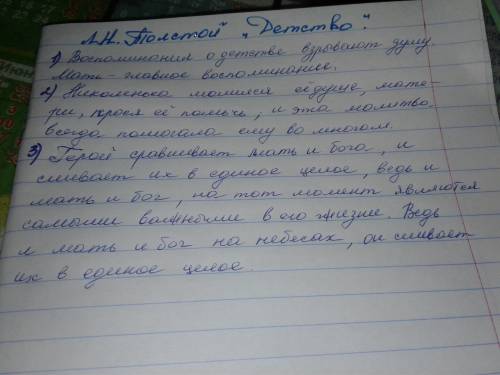 Л.Н. Толстой "Детство".
1) Воспоминания о детстве взрывают душу.
Мать - главное воспоминание.
2) Николенька молился её душе, мате-
ри, прося её помочь, и эта молитва
всегда помогала ему во многом.
3) Герой сравнивает мать и бога, и
сливает их в единое целое, ведь и
мать и бог, на тот момент являются
самыми важными в его жизни. Ведь
и мать и бог на небесах, он сливает
их в единое целое.